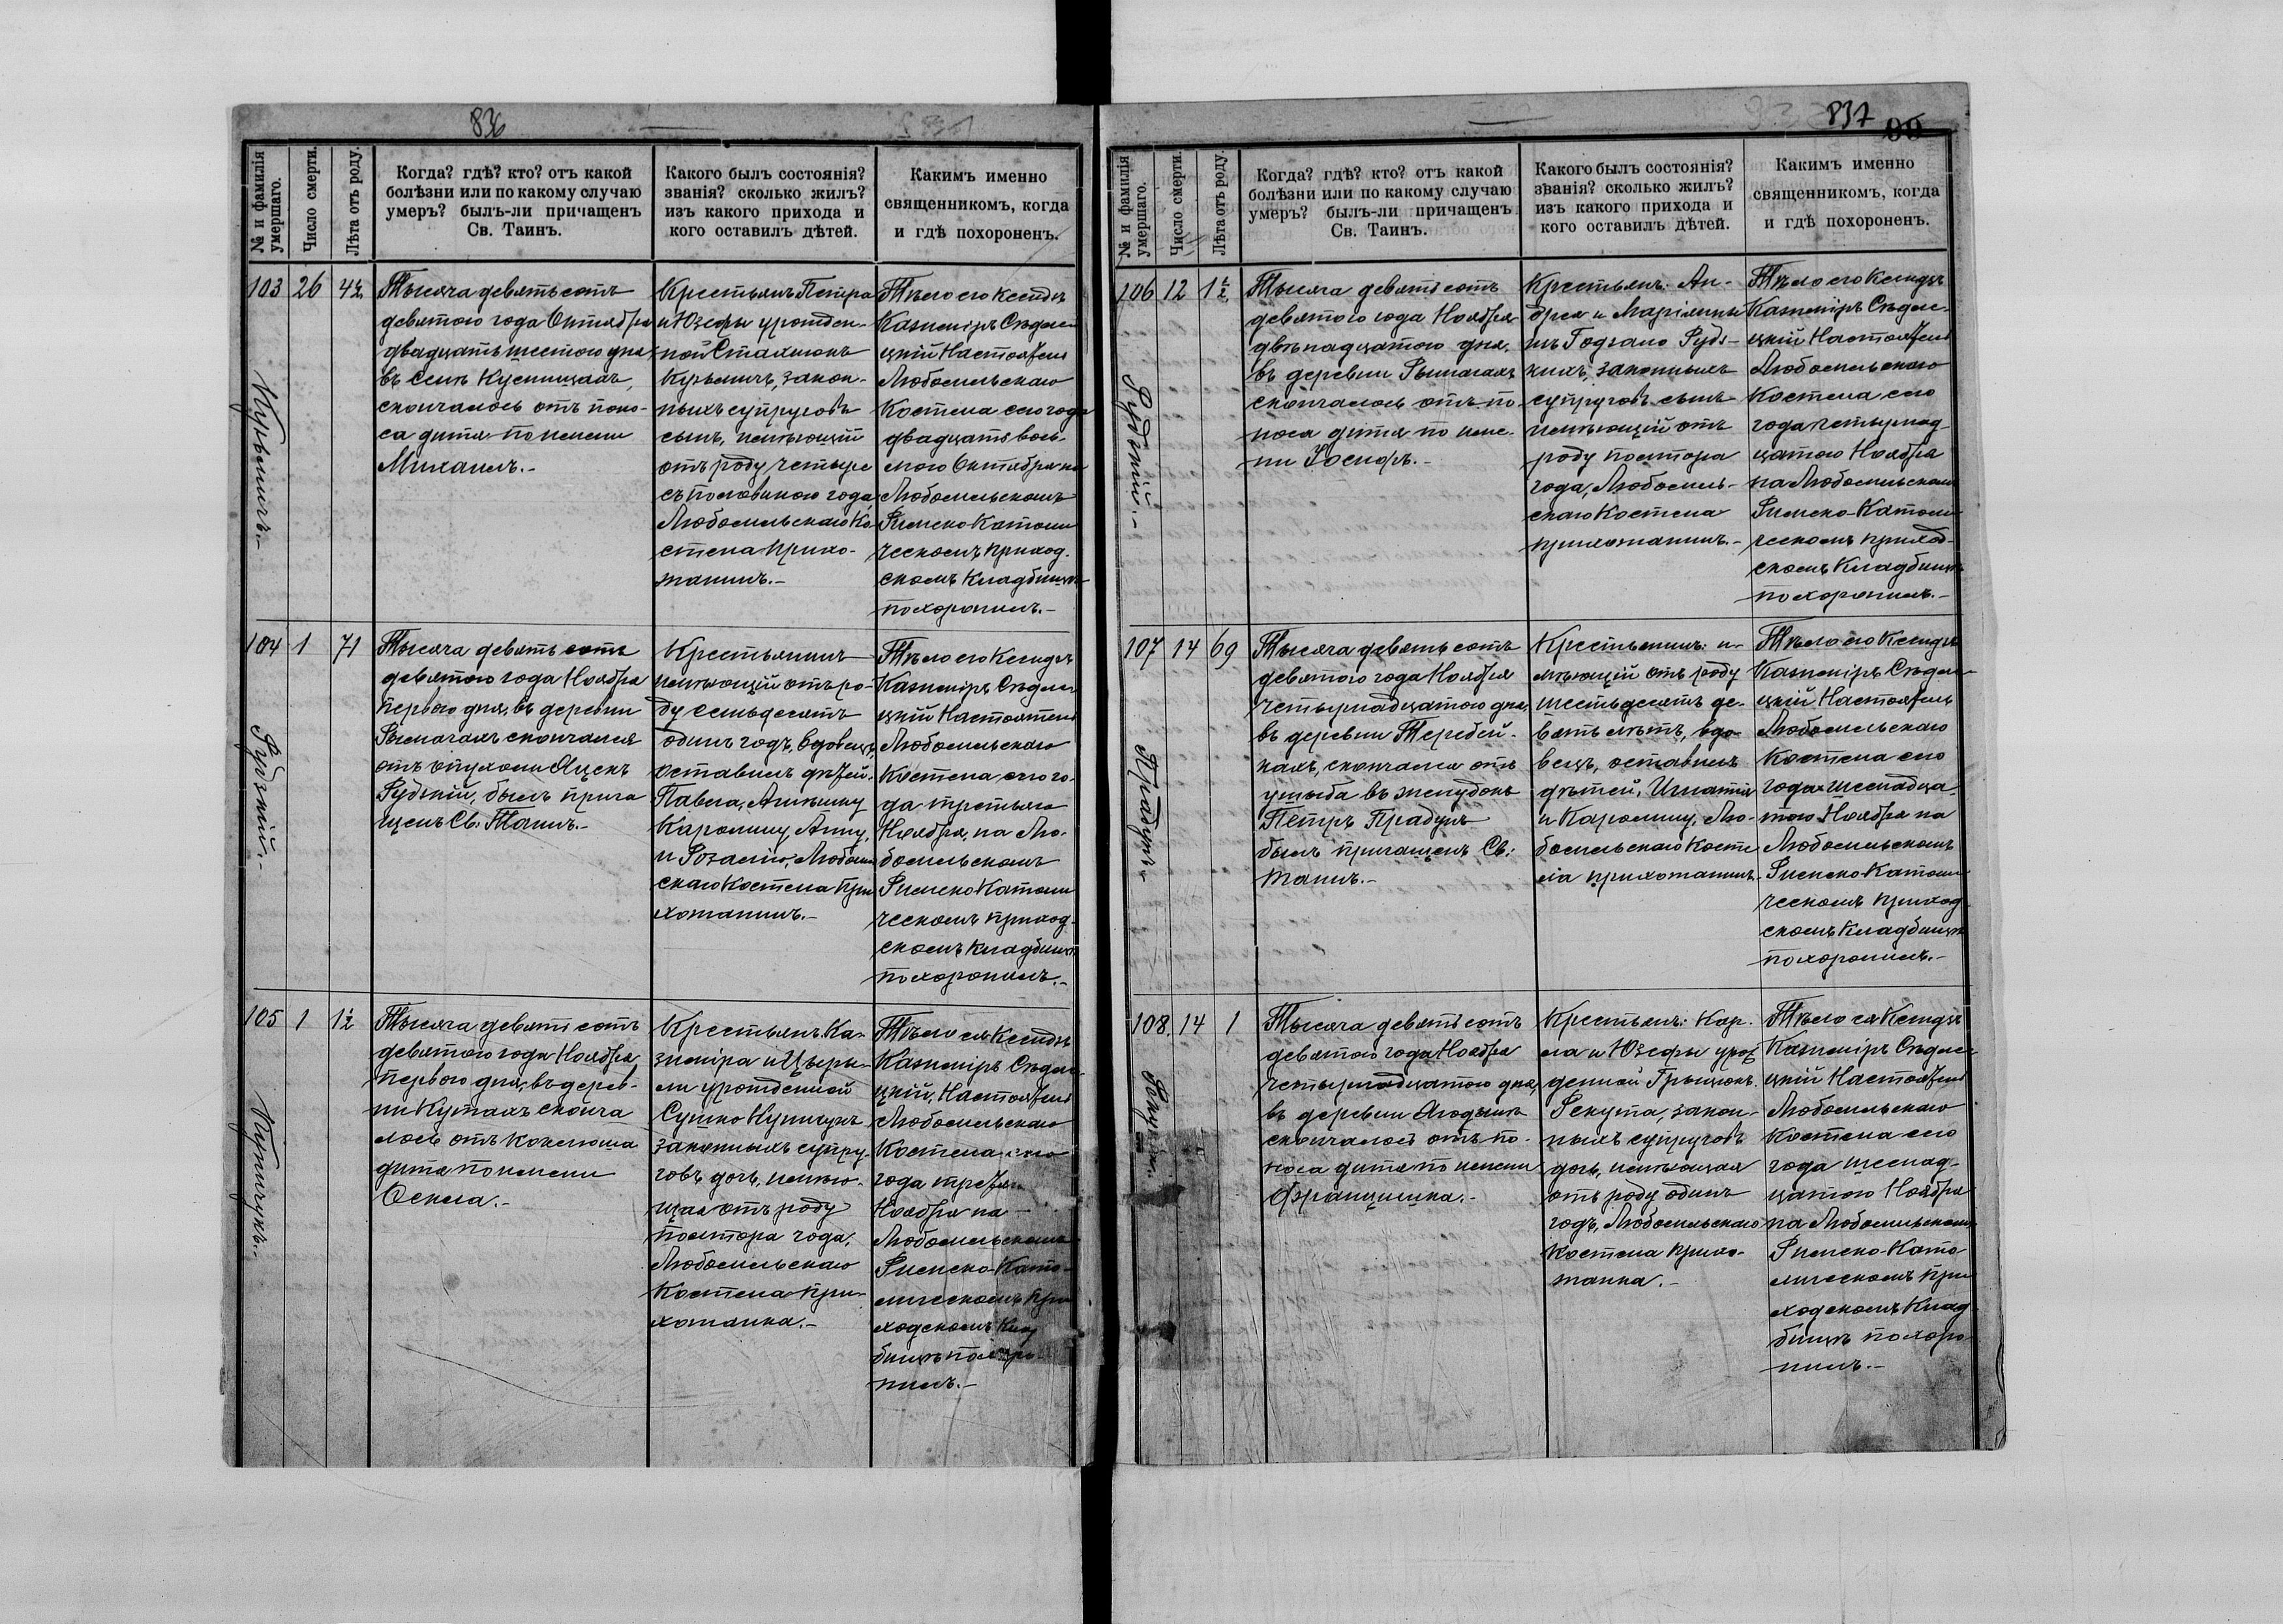 836
№ и фамилія умершаго.
Число смерти.
Лѣта отъ роду.
Когда? гдѣ? кто? отъ какой
болѣзни или по какому случаю
умеръ? былъ-ли причащенъ
Св. Таинъ.
Какого былъ состоянія?
званія? сколько жилъ?
изъ какого прихода и
кого оставилъ дѣтей.
Какимъ именно
священникомъ, когда
и гдѣ похороненъ.
103
Кузьмичъ.-
26
4½
Тысяча девятьсотъ
девятого года Октября
двадцать шестого дня
въ селѣ Кусницахъ,
скончалось отъ поно-
са дитя по имени
Михаилъ.-
Крестьянъ Петра
и Юзефы урожден-
ной Стахнюкъ
Кузьмичъ, закон-
ныхъ супруговъ
сынъ, имѣющій
отъ роду четыре
съ половиною года,
Любомльскаго Ко-
стела прихо-
жанинъ.-
Тѣло его Ксендзъ
Казиміръ Сѣдле-
цкій Настоятель
Любомльскаго
Костела сего года
двадцать вось-
мого Октября на
Любомльскомъ
Римско Католи
ческомъ приход-
скомъ Кладбищѣ
похоронилъ.-
104
Рудзкій.-
1
71
Тысяча девятьсотъ
девятого года Ноября
первого дня, въ деревни
Рымачахъ скончался
отъ опухоли Яцекъ
Рудзкій, былъ прича
щенъ Св. Таинъ.-
Крестьянинъ
имѣющій отъ ро-
ду семьдесятъ
одинъ годъ, вдовецъ,
оставилъ дѣтей:
Павла, Агнѣшку
Каролину, Анну,
и Розалію, Любомль
скаго Костела при
хожанинъ.-
Тѣло его Ксендзъ
Казиміръ Сѣдле-
цкій Настоятель
Любомльскаго
Костела сего го-
да третьяго
Ноября, на Лю-
бомльскомъ
Римско Католи
ческомъ приход-
скомъ Кладбищѣ
похоронилъ.-
105
1
1½
Тысяча девятьсотъ
девятого года Ноября
первого дня, въ дерев-
ни Кутахъ сконча
лось отъ коклюша
дитя по имени
Осмела.-
Крестьянъ Ка-
зиміра и Цецы-
ли урожденной
Сушко
законныхъ супру-
говъ дочь, имѣю-
щая отъ роду
полтора года,
Любомльскаго
Костела при-
хожанка.-
Тѣло ея Ксендзъ
Казиміръ Сѣдле-
цкій, Настоятель
Любомльскаго
Костела сего
года третьяго
Ноября на
Любомльскомъ
Римско-Като-
лическомъ при
ходскомъ Клад
бищѣ похоро-
нилъ.-
837
№ и фамилія умершаго.
Число смерти.
Лѣта отъ роду.
Когда? гдѣ? кто? отъ какой
болѣзни или по какому случаю
умеръ? былъ-ли причащенъ
Св. Таинъ.
Какого былъ состоянія?
званія? сколько жилъ?
изъ какого прихода и
кого оставилъ дѣтей.
Какимъ именно
священникомъ, когда
и гдѣ похороненъ.
106
Рудзкій.-
12
1½
Тысяча девятьсотъ
девятого года Ноября
двѣнадцатого дня,
въ деревни Рымачахъ
скончалось отъ по
носа дитя по име-
ни Іосифъ.-
Крестьянъ: Ан-
дрея и Маріянны
изъ Годзало Рудз-
кихъ, законныхъ
супруговъ сынъ
имѣющій отъ
роду полтора
года, Любомль-
скаго Костела
прихожанинъ.-
Тѣло его Ксендзъ
Казиміръ Сѣдле-
цкій Настоятель
Любомльскаго
Костела сего
года четырнад-
цатого Ноября
на Любомльскомъ
Римско-Католи-
ческомъ приход-
скомъ Кладбищѣ
похоронилъ.-
107
Прадунъ-
14
69
Тысяча девятьсотъ
девятого года Ноября
четырнадцатого дня,
въ деревни Теребей-
кахъ, скончался отъ
ушиба въ желудокъ
Петръ Прадунъ
былъ причащенъ Св:
Таинъ.-
Крестьянинъ: и-
мѣющій отъ роду
шестьдесятъ де-
вять лѣтъ, вдо-
вецъ, оставилъ
дѣтей, Игнатія
и Каролину, Лю-
бомльскаго Косте
ла прихожанинъ.-
Тѣло его Ксендзъ
Казиміръ Сѣдле-
цкій Настоятель
Любомльскаго
Костела сего
года шеснадца-
того Ноября на
Любомльскомъ
Римско Католи-
ческомъ приход-
скомъ Кладбищѣ
похоронилъ.-
108.
14
1
Тысяча девятьсотъ
девятого года Ноября
четырнадцатого дня,
въ деревни
скончалось отъ по-
носа дитя по имени
Францишка.-
Крестьянъ: Кар-
ла и Юзефы урож
денной Грыцюкъ
Рекута, закон-
ныхъ супруговъ
дочь, имѣющая
отъ роду одинъ
годъ, Любомльскаго
Костела прихо-
жанка.-
Тѣло ея Ксендзъ
Казиміръ Сѣдле-
цкій Настоятель
Любомльскаго
Костела сего
года шеснад-
цатого Ноября
на Любомльскомъ
Римско-Като
лическомъ при
ходскомъ Клад
бищѣ похоро-
нилъ.-